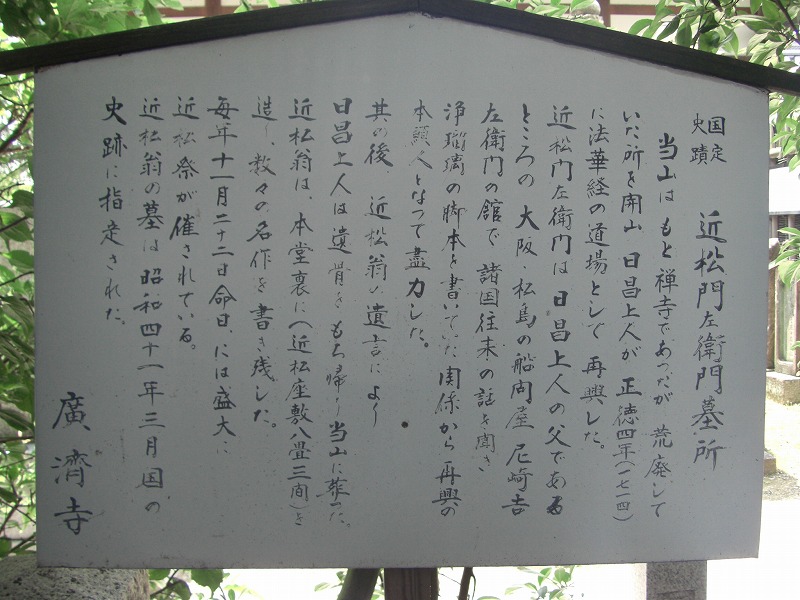 国定史蹟 近松門左衛門墓所
当山は もと禅寺であつたが 荒廃して
いた所を開山 日昌上人が 正徳四年(一七一四)
に法華経の道場として 再興した。
近松門左衛門は 日昌上人の父である
ところの 大阪・松島の船問屋 尼崎吉
左衛門の館で 諸国往来の話を聞き
浄瑠璃の脚本を書いていた関係から 再興の
本願人となつて盡力した。
其の後、近松翁の遺言により
日昌上人は遺骨をもち帰り当山に葬った。
近松翁は、本堂裏に(近松座敷八畳三間)を
造し、数々の名作を書き残した。
毎年十一月二十二日命日、には盛大に
近松祭が催されている。
近松翁の墓は 昭和四十一年三月国の
史跡に指定された。
廣濟寺